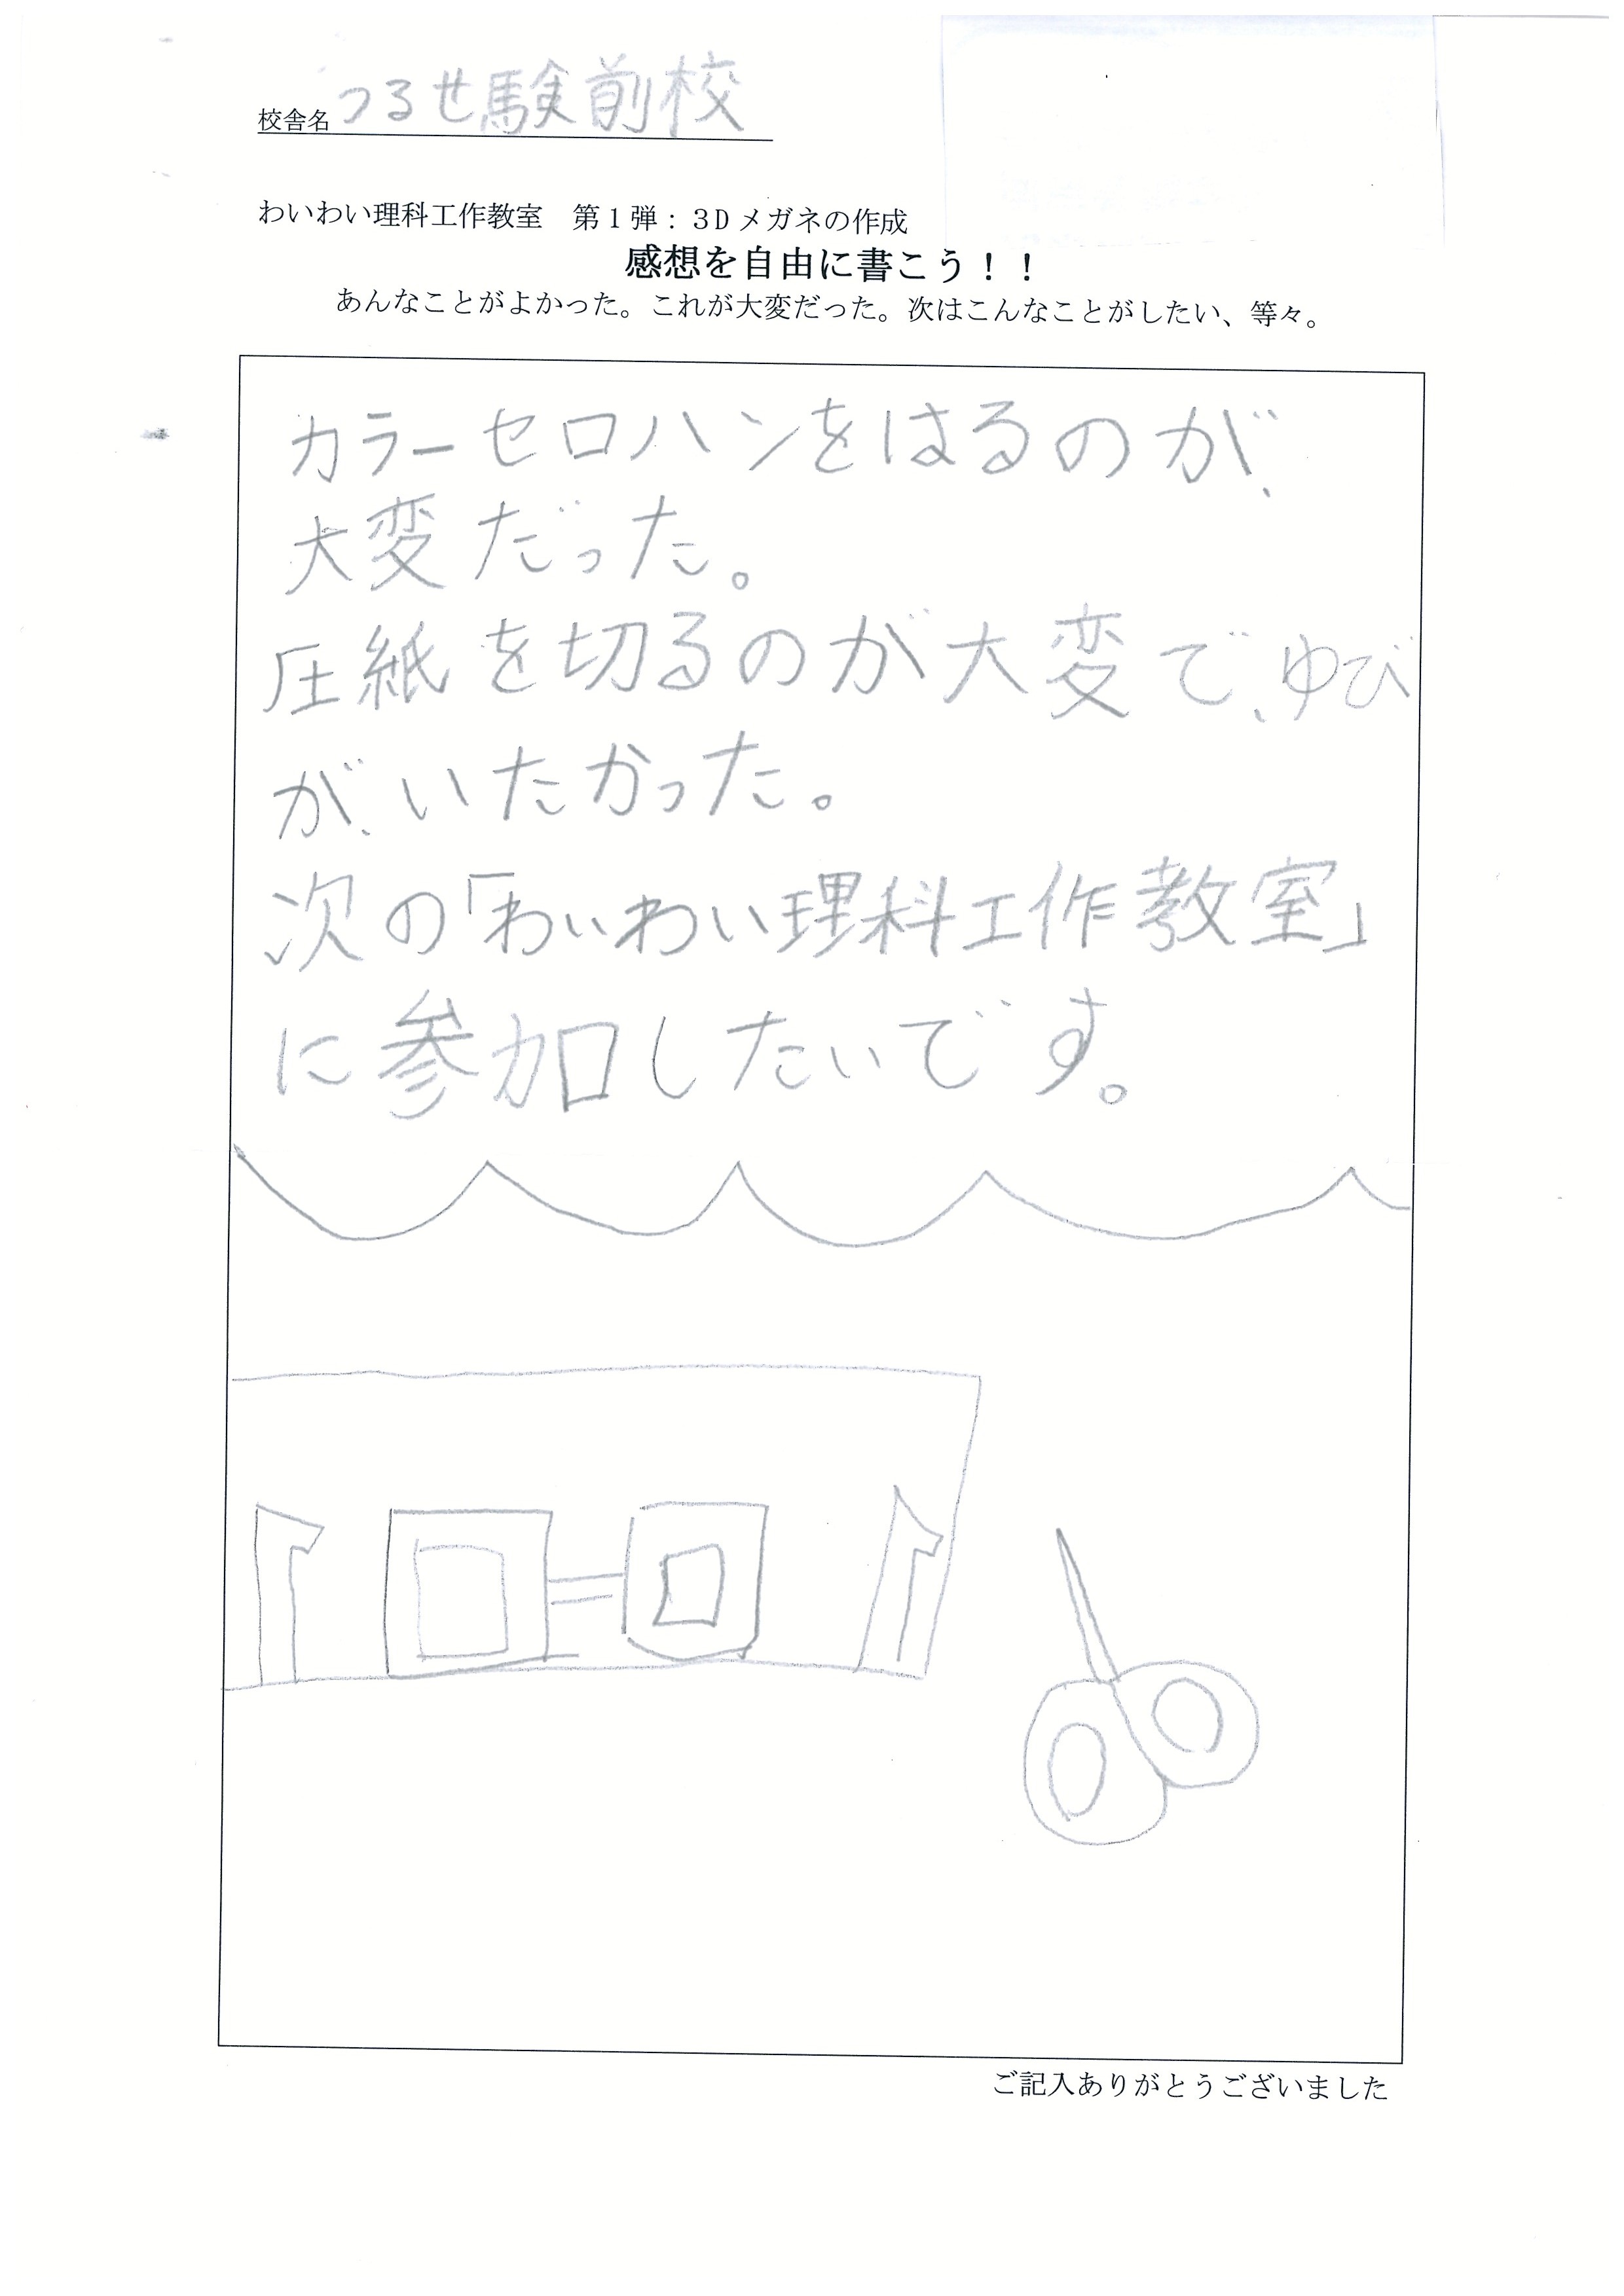 校舎名 つるせ験前校
わいわい理科工作教室 第1弾：3Dメガネの作成
感想を自由に書こう！！
あんなことがよかった。これが大変だった。次はこんなことがしたい、等々。
カラーセロハンをはるのが、
大変だった。
圧紙を切るのが大変で、ゆび
が、いたかった。
次の「わいわい理科工作教室」
に参加したいです。
ご記入ありがとうございました